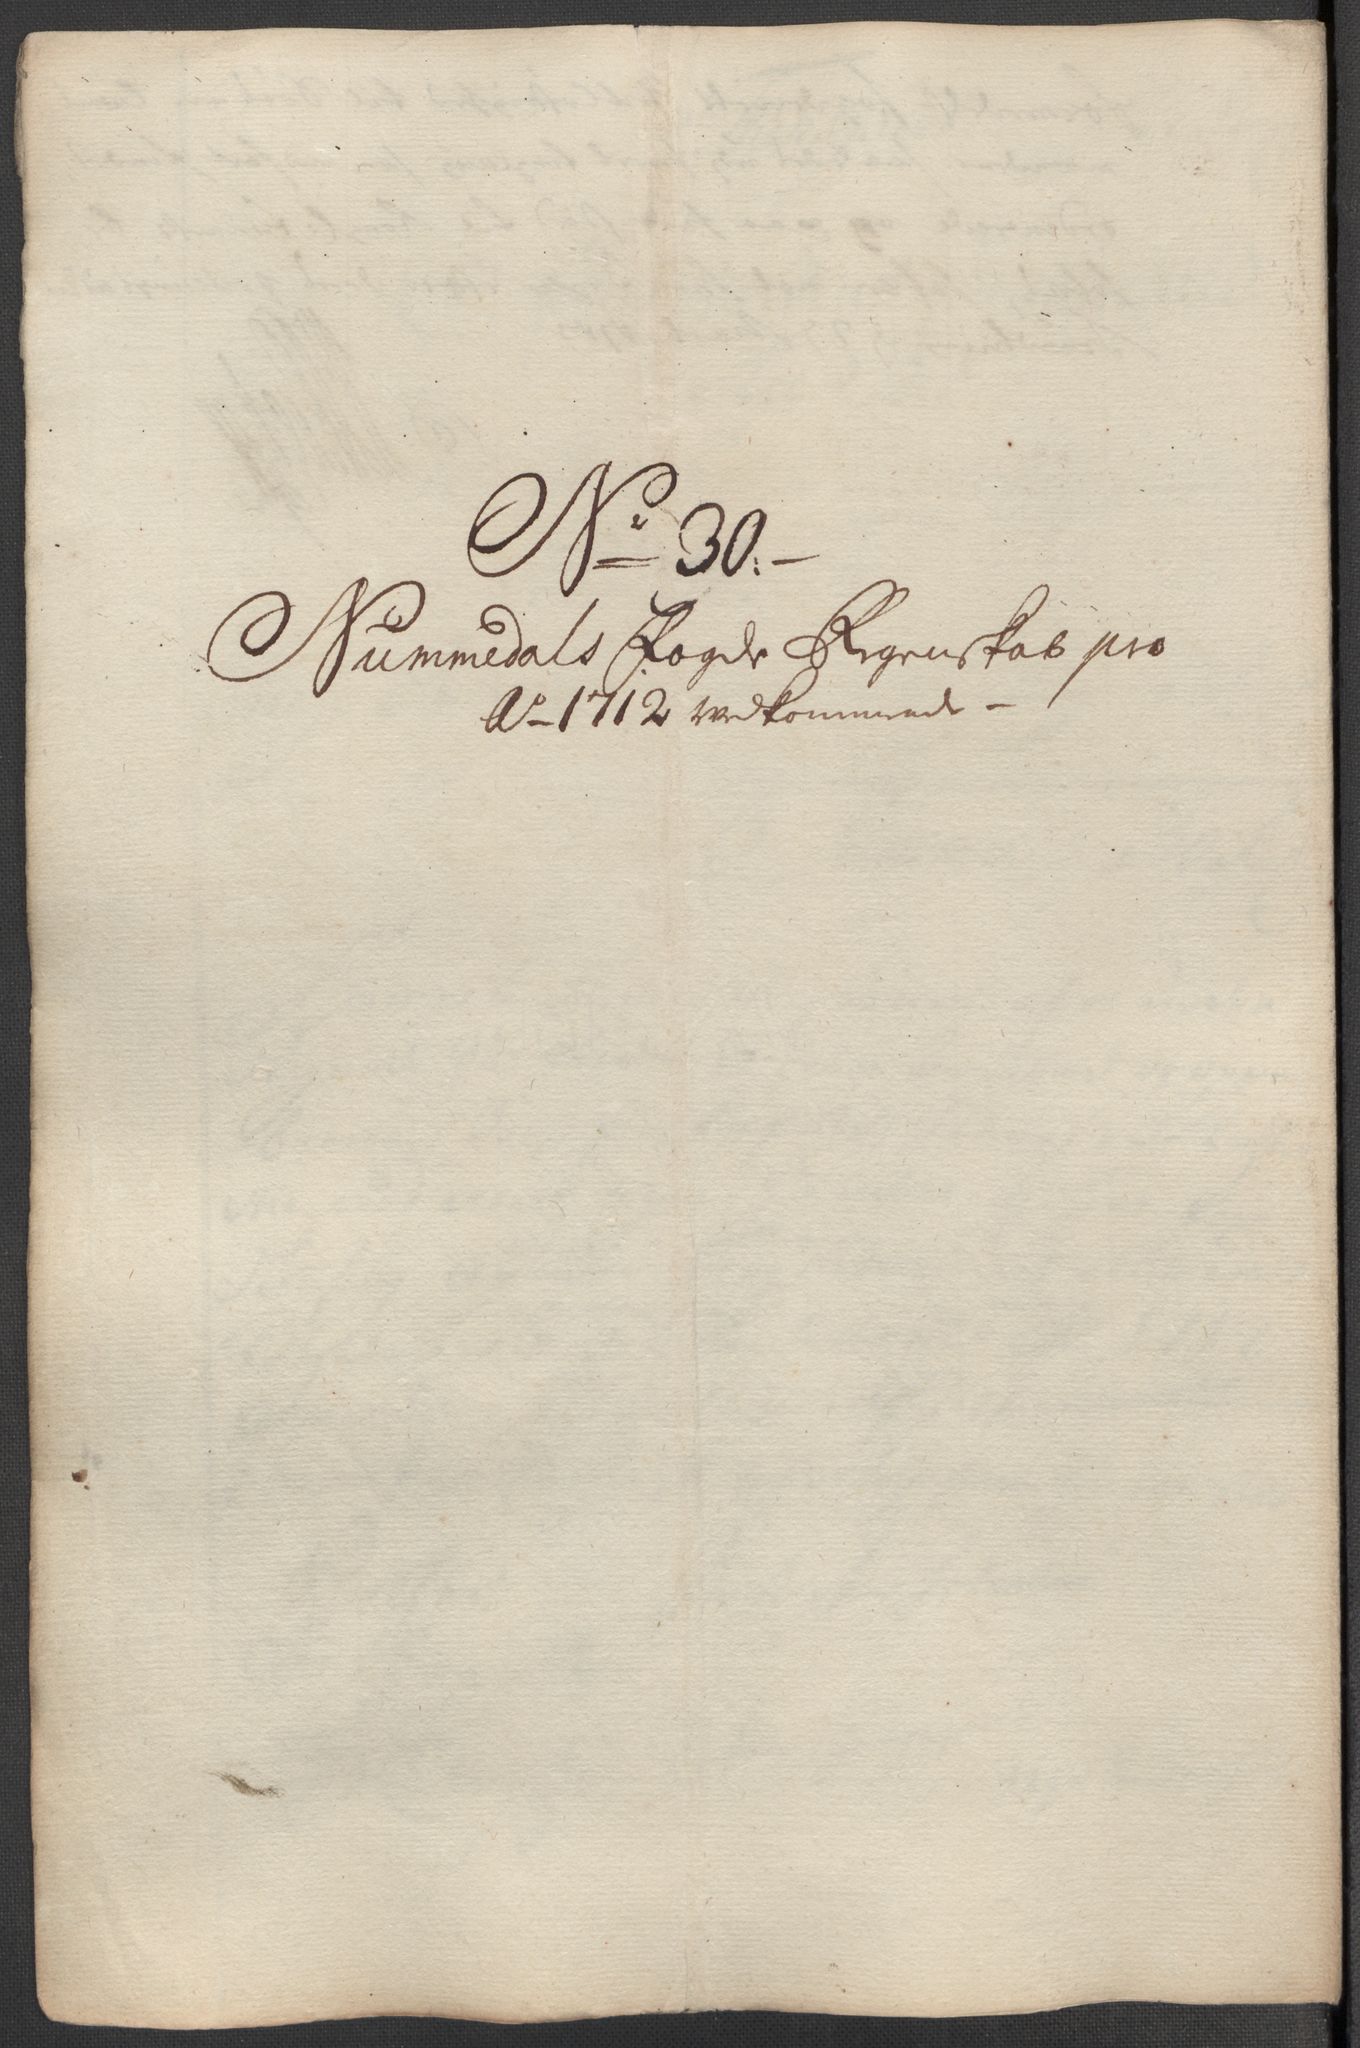 No 30.-
Nummedals Fogde Regenskab pro
Ao 1712 vedkommende -